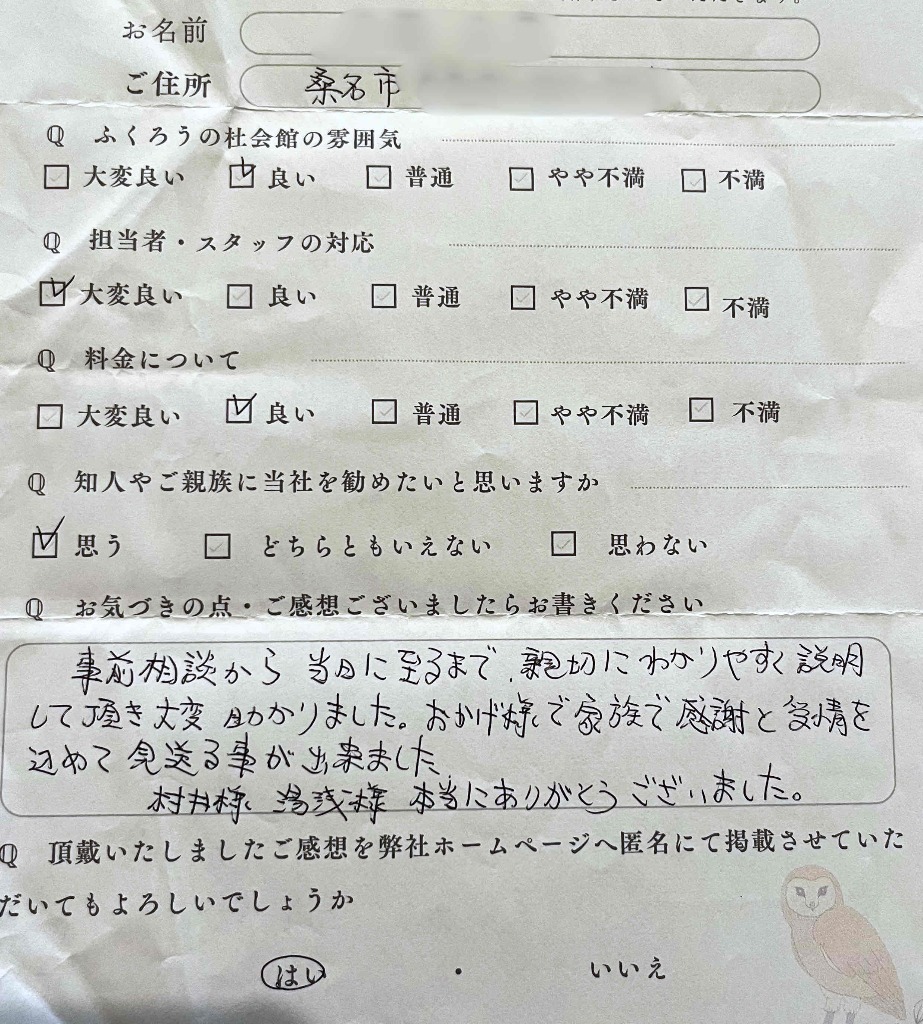 お名前
ご住所 桑名市
Q ふくろうの杜会館の雰囲気
大変良い 良い 普通 やや不満 不満
Q 担当者・スタッフの対応
大変良い 良い 普通 やや不満 不満
Q 料金について
大変良い 良い 普通 やや不満 不満
Q 知人やご親族に当社を勧めたいと思いますか
思う どちらともいえない 思わない
Q お気づきの点・ご感想ございましたらお書きください
事前相談から 当日に至るまで、親切にわかりやすく説明
して頂き大変 助かりました。おかげ様で家族で感謝と愛情を
込めて見送る事が出来ました
村井様、湯浅様 本当にありがとうございました。
Q 頂戴いたしましたご感想を弊社ホームページへ匿名にて掲載させていた
だいてもよろしいでしょうか
はい ・ いいえ